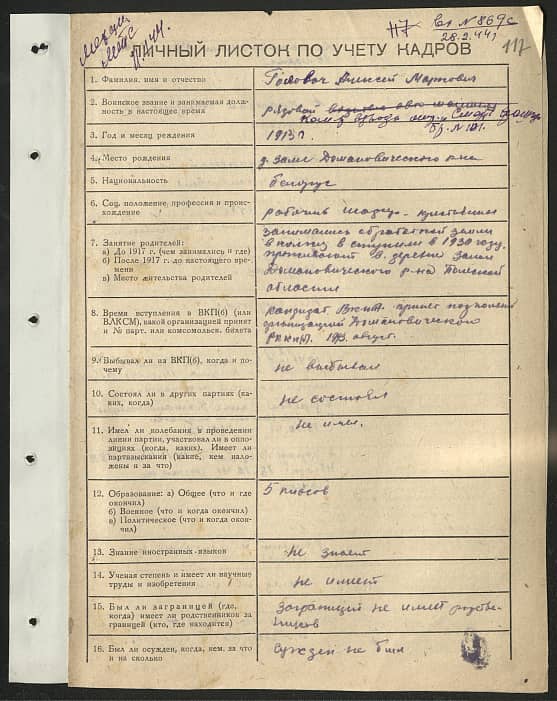 Вх №869с
28.2.44г
117
ЛИЧНЫЙ ЛИСТОК ПО УЧЕТУ КАДРОВ
1. Фамилия, имя и отчество
Головач Алексей Маркович
2. Воинское звание и занимаемая долж-
ность в настоящее время
рядовой
Смерт
Бр. №101.
3. Год и месяц рождения
1913 г.
4. Место рождения
Домановического р-на
5. Национальность
белорус
6. Соц. положение, профессия и проис-
хождение
рабочий крестьянин
7. Занятие родителей:
а) До 1917 г. (чем занимались и где)
б) После 1917 г. до настоящего вре-
мени
в) Место жительства родителей
занимались обработкой земли
в колхоз вступили в 1930 году,
в деревне
Домановического р-на Полесской
области
8. Время вступления в ВКП(б) (или
ВЛКСМ), какой организацией принят
и № парт. или комсомольск. билета
кандидат принят
организацией Домановического
август.
9. Выбывал ли из ВКП(б), когда и по-
чему
не выбывал
10. Состоял ли в других партиях (ка-
ких, когда)
не состоял
11. Имел ли колебания в проведении
линии партии, участвовал ли в оппо-
зициях (когда, каких). Имеет ли
партвзыскания (какие, кем нало-
жены и за что)
не имел.
12. Образование: а) Общее (что и где
окончил)
б) Военное (что и когда окончил)
в) Политическое (что и когда окон-
чил)
5 классов
13. Знание иностранных языков
не знает
14. Ученая степень и имеет ли научные
труды и изобретения
не имеет
15. Был ли заграницей (где,
когда) имеет ли родственников за
границей (кто, где находится)
заграницей не имеет родстве-
нников
16. Был ли осужден, когда, кем, за что
и на сколько
сужден не был